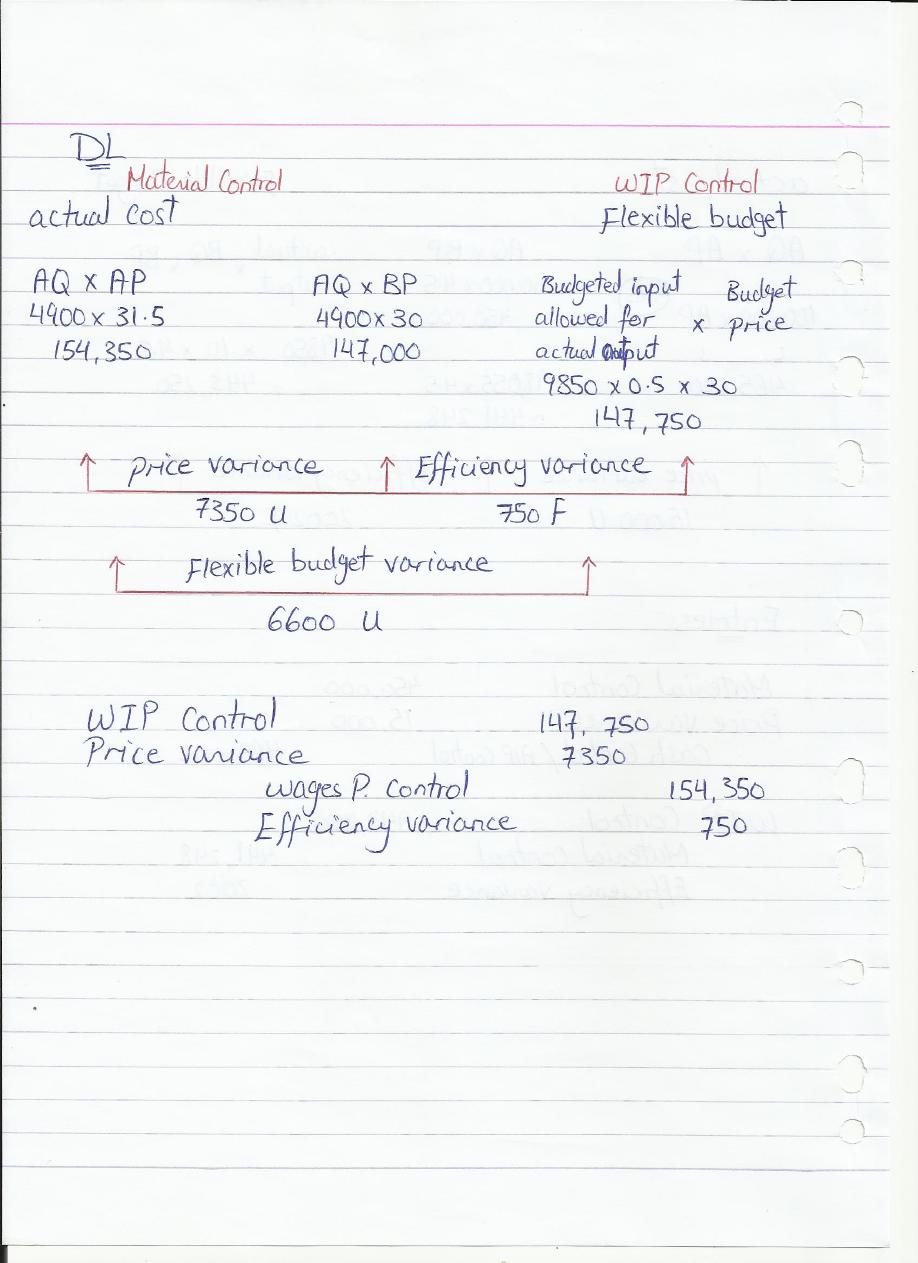 DL
Material Control WIP Control
actual cost Flexible budget
AQ x AP AQ x BP Budgeted input Budget
4900 x 31.5 4900 x 30 allowed for x price
154,350 147,000 actual output
9850 x 0.5 x 30
147,750
Price variance Efficiency variance
7350 U 750 F
Flexible budget variance
6600 U
WIP Control 147,750
Price variance 7350
wages P. Control 154,350
Efficiency variance 750